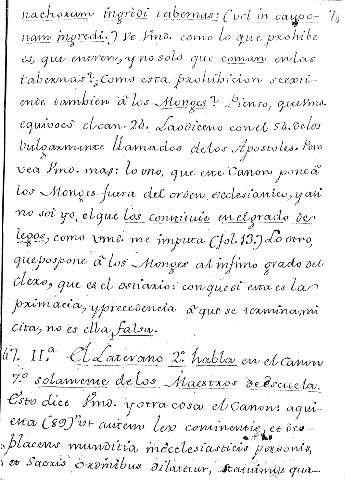 nachorum ingredi tabernas: (vel in caupo-
nam ingredi.) Ve Vmd. como lo que prohibe
es, que entren, y no solo que coman en las
tabernas? Como esta prohibicion se exti-
ende tambien à los Monges? Pienso, que Vm.
equivocò el can. 24. Laodiceno con el 54. de los
vulgarmente llamados de los Apostoles. Pero
vea Vmd. mas: lo uno, que este Canon pone à
los Monges fuera del orden ecclesiastico, y asi
no soi yo, el que los constituio en el grado de
legos, como Vmd. me imputa (fol. 13.) Lo otro,
que pospone à los Monges al infimo grado del
clero, que es el ostiario: con que si esta es la
primacia, y precedencia à que se termina mi
cita, no es ella falsa.
67. II.ª El Laterano 2.º habla en el Canon
7.º solamente de los Maestros de escuela.
Esto dice Vmd. y otra cosa el Canon: aqui
esta (89) ut autem lex continentiæ, et Deo
placens munditia in ecclesiasticis personis,
et sacris ordinibus dilatetur, statuimus qua-